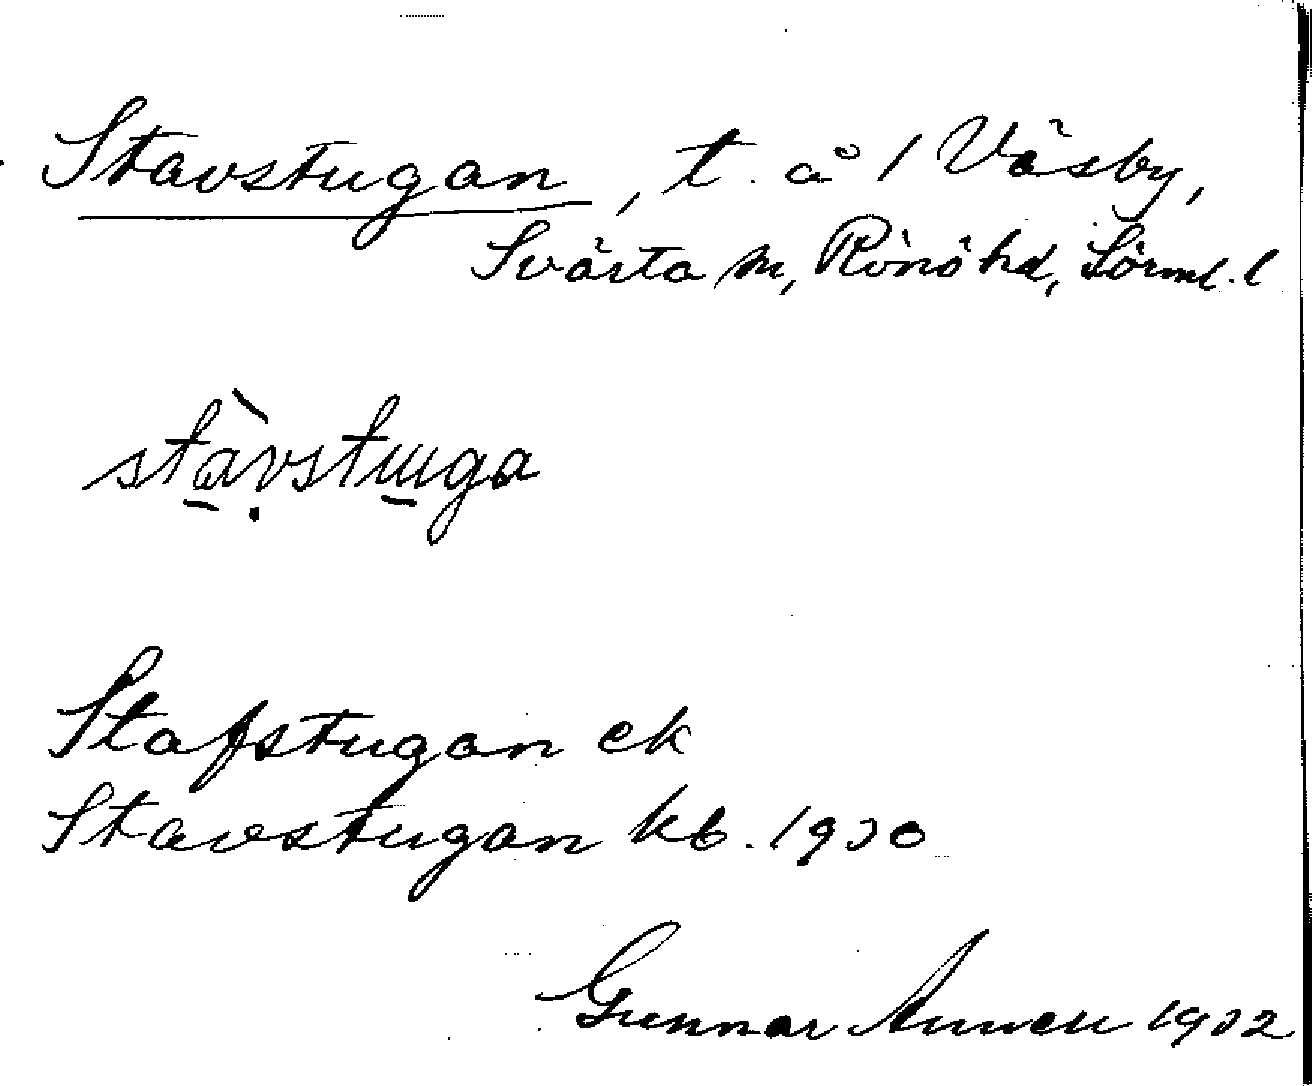 Stavstugan, t. å 1 Väsby,
Svärta sn, Rönö hd, Sörml. l
stàvstuga
Stafstugan ek
Stavstugan kb. 1930
Gunnar 1932